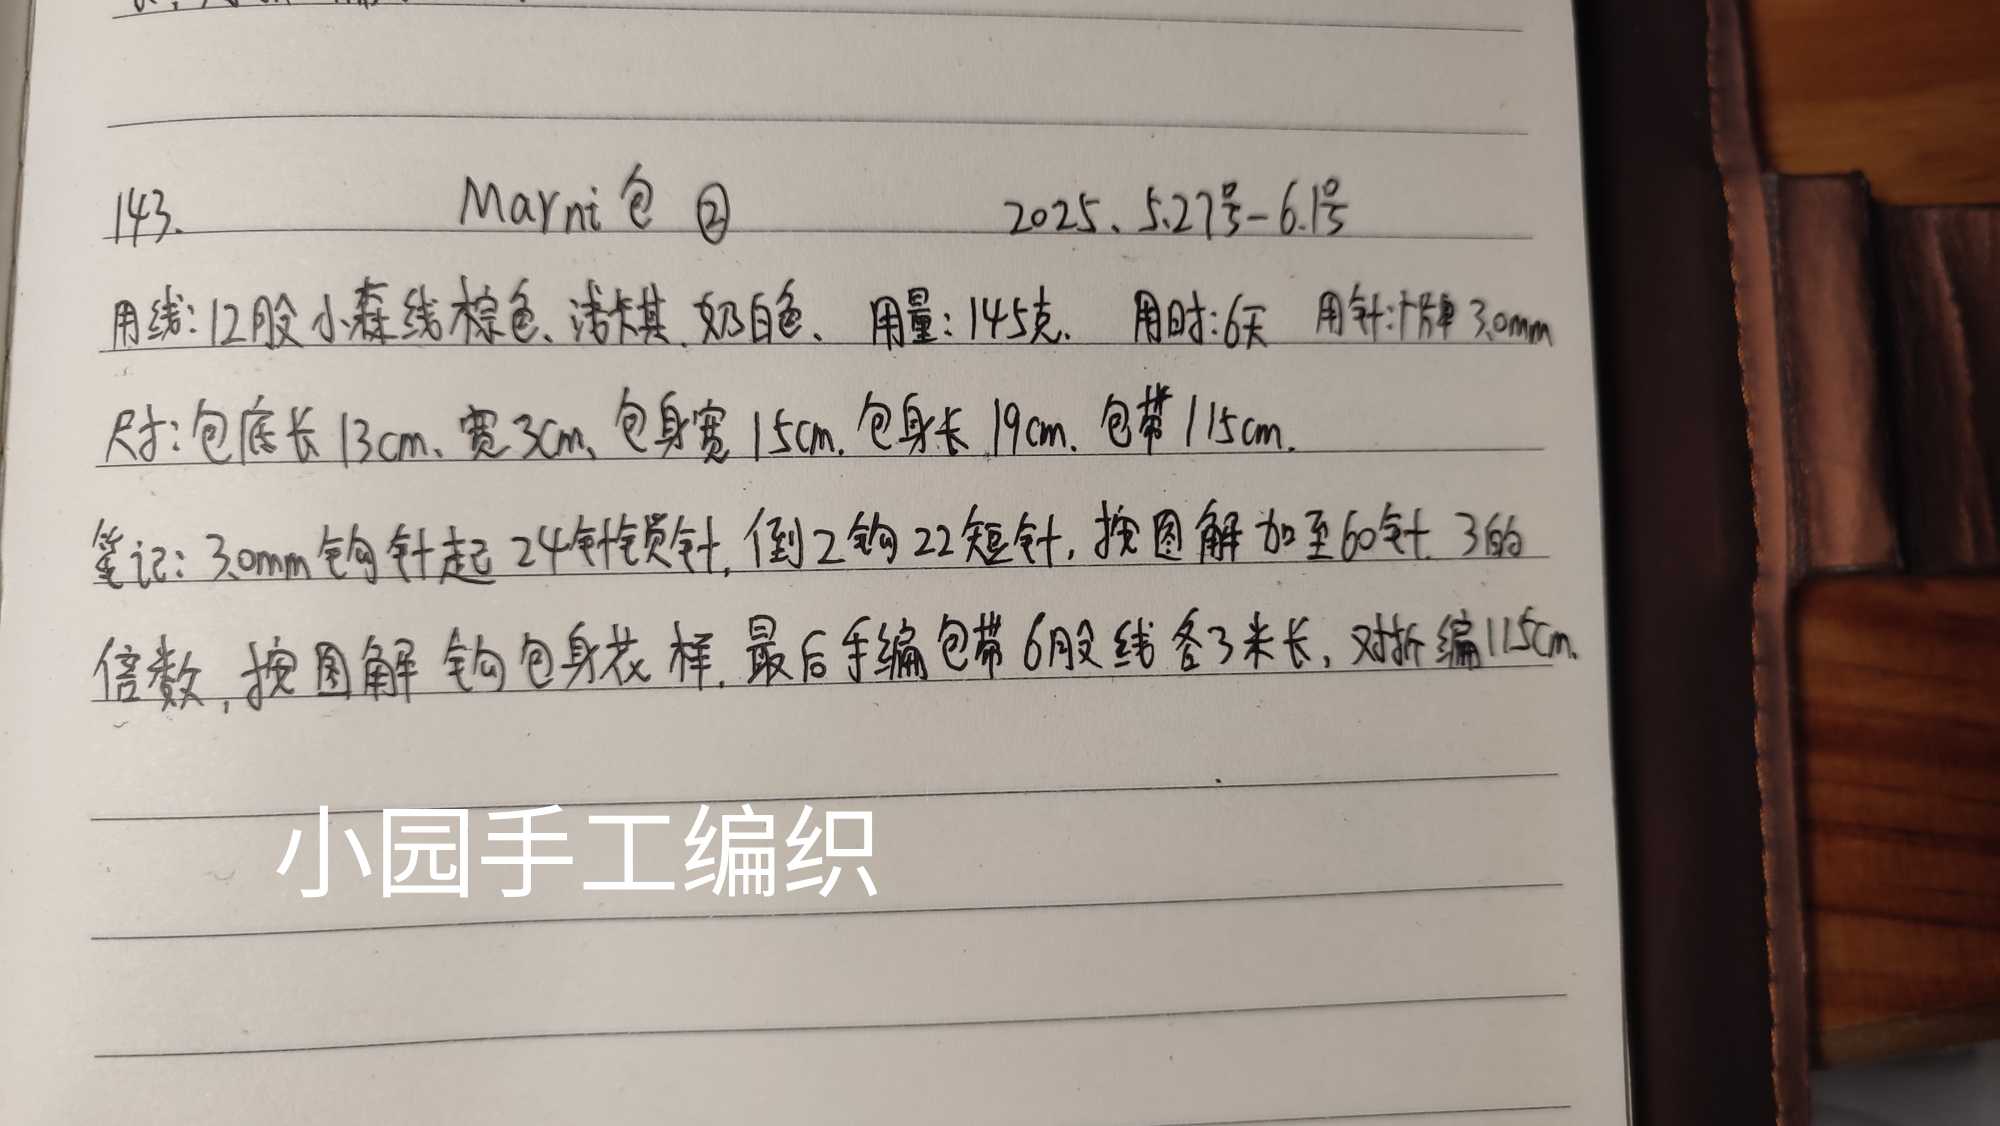 143. Marni包 ② 2025.5.27号-6.1号
用线:12股小森线棕色、浅卡其、奶白色、 用量:145克. 用时:6天 用针:广牌3.0mm
尺寸:包底长13cm、宽3cm、包身宽15cm.包身长19cm.包带115cm.
笔记:3.0mm钩针起24针锁针,倒2钩22短针,按图解加至60针.3的
倍数,按图解钩包身花样.最后手编包带6股线各3米长,对折编115cm.
小园手工编织